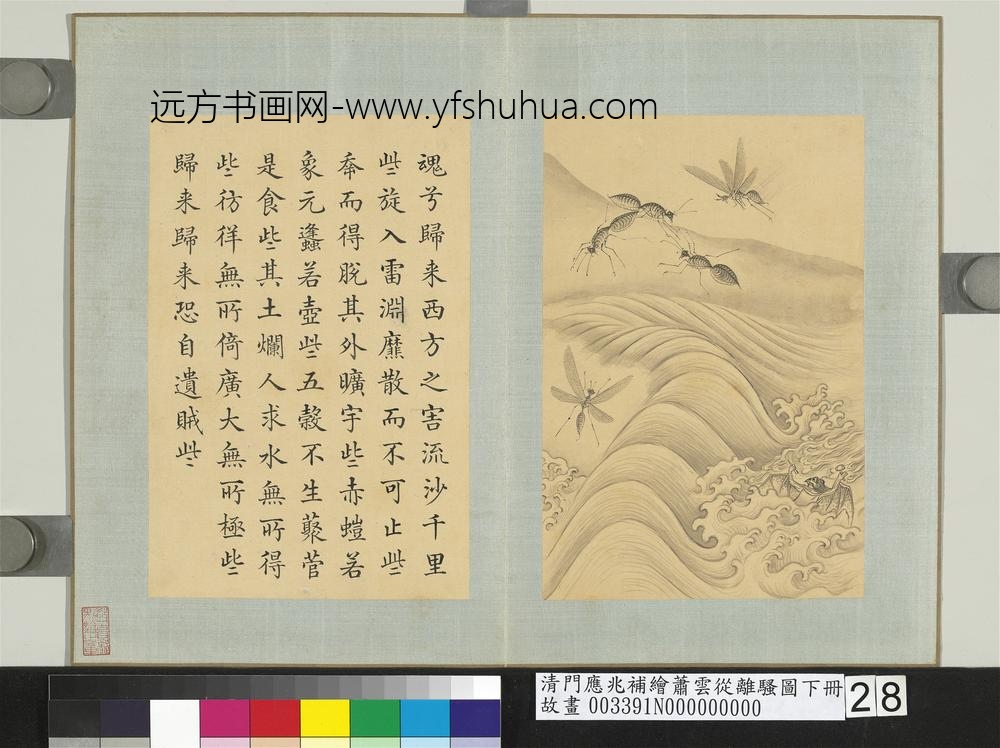 远方书画网-www.yfshuhua.com
魂兮歸来西方之害流沙千里
些旋入雷淵靡散而不可止些
夲而得脫其外曠宇些赤螘若
象元蠭若壺些五穀不生藂菅
是食些其土爛人求水無所得
些彷徉無所倚廣大無所極些
歸来歸来恐自遺賊些
清門應兆補繪蕭雲從離騷圖下冊
故畫 003391N000000000
28